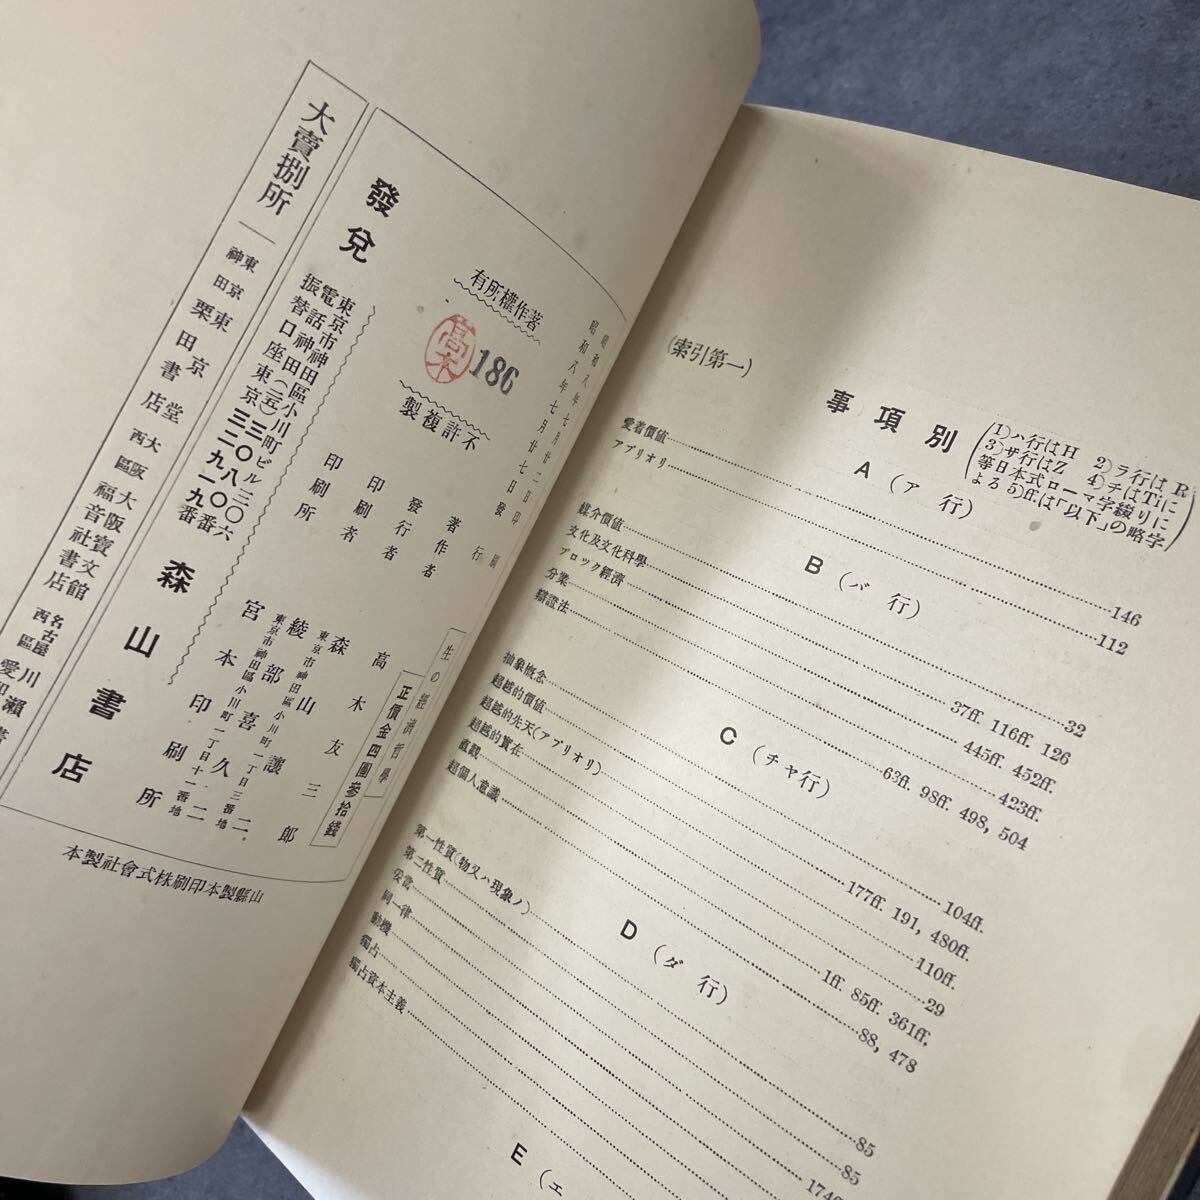 昭和八年七月廿二日印刷
昭和八年七月廿七日發行
生の經濟哲學
正價金四圓參拾錢
著作權所有
186
不許複製
著作者 高木友三郎
發行者 森山讓二
印刷者 綾部喜久二
印刷所 宮本印刷所
發兌
東京市神田區小川町ビル
森山書店
大賣捌所
東京神田
東京堂
栗田書店
大阪
西區
大阪寶文館
福音社書店
名古屋
西區
川瀨書
山縣製本印刷株式會社製本
(索引第一)
事項別
1)ハ行はH 2)ラ行はR
3)ザ行はZ 4)チはTiに
等日本式ローマ字綴りに
よる 5)ff.は「以下」の略字
A (ア行)
愛着價値 146
アプリオリ 112
B (バ行)
媒介價値 32
文化及文化科學 37ff. 116ff. 126
ブロック經濟 445ff. 452ff.
分業 423ff.
辯證法 63ff. 98ff. 498, 504
C (チヤ行)
抽象概念 104ff.
超越的價値 177ff. 191, 480ff.
超越的先天(アプリオリ) 110ff.
超越的實在 29
直觀 1ff. 85ff. 361ff.
超個人意識 88, 478
D (ダ行)
第一性質(物又ハ現象ノ) 85
第二性質 85
妥當
同一律
動機
獨占
獨占資本主義
E (エ